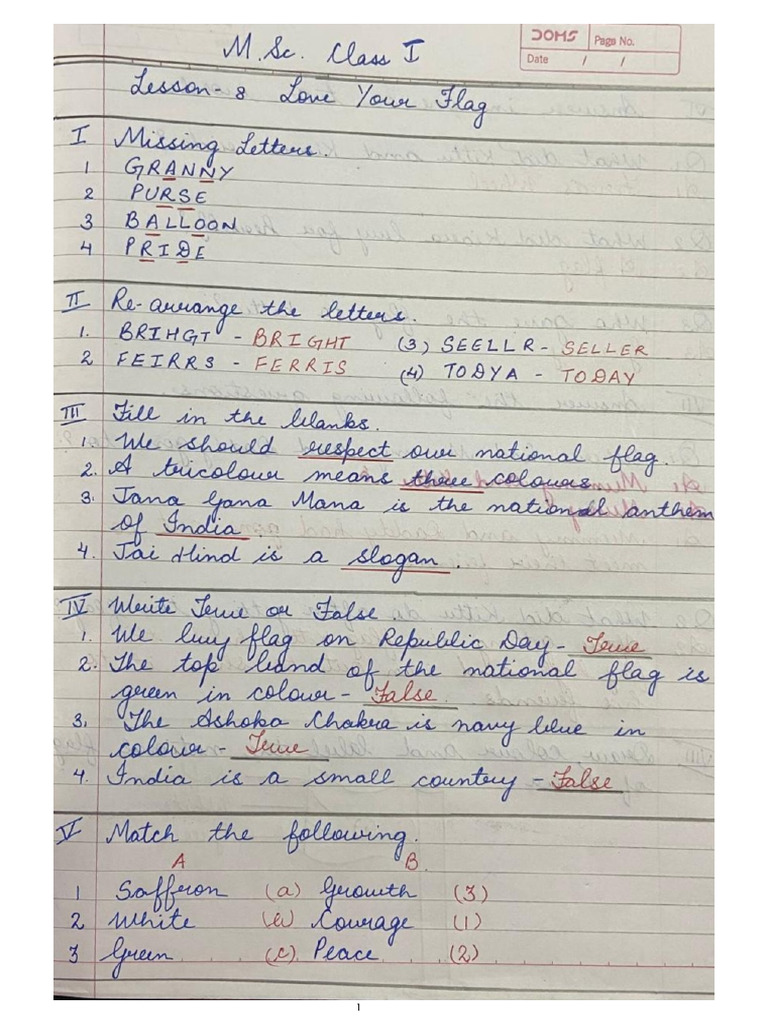 DOMS Page No.
Date / /
M.Sc. Class I
Lesson-8 Love Your Flag
I Missing Letters.
1 GRANNY
2 PURSE
3 BALLOON
4 PRIDE
II Re-arrange the letters.
1. BRIHGT - BRIGHT (3) SEELLR - SELLER
2 FEIRRS - FERRIS (4) TODYA - TODAY
III Fill in the blanks.
1. We should respect our national flag.
2. A tricolour means three colours.
3. Jana Gana Mana is the national anthem
of India.
4. Jai Hind is a slogan.
IV Write True or False.
1. We buy flag on Republic Day - True
2. The top band of the national flag is
green in colour - False.
3. The Ashoka Chakra is navy blue in
colour - True
4. India is a small country - False
V Match the following.
A B.
1 Saffron (a) Growth (3)
2 White (b) Courage (1)
3 Green (c). Peace (2)
1